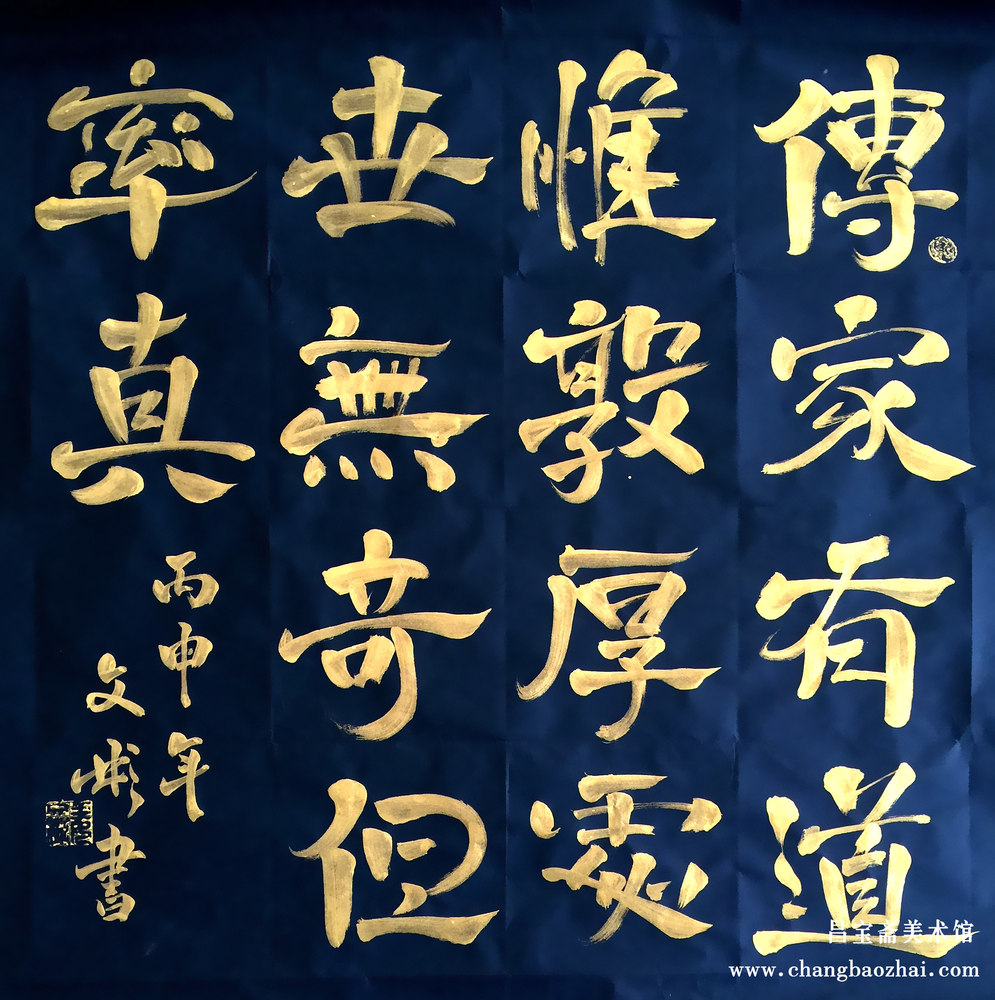 傳家有道
惟敦厚處
世無奇但
率真
丙申年
文彬書
昌宝斋美术馆
www.changbaozhai.com